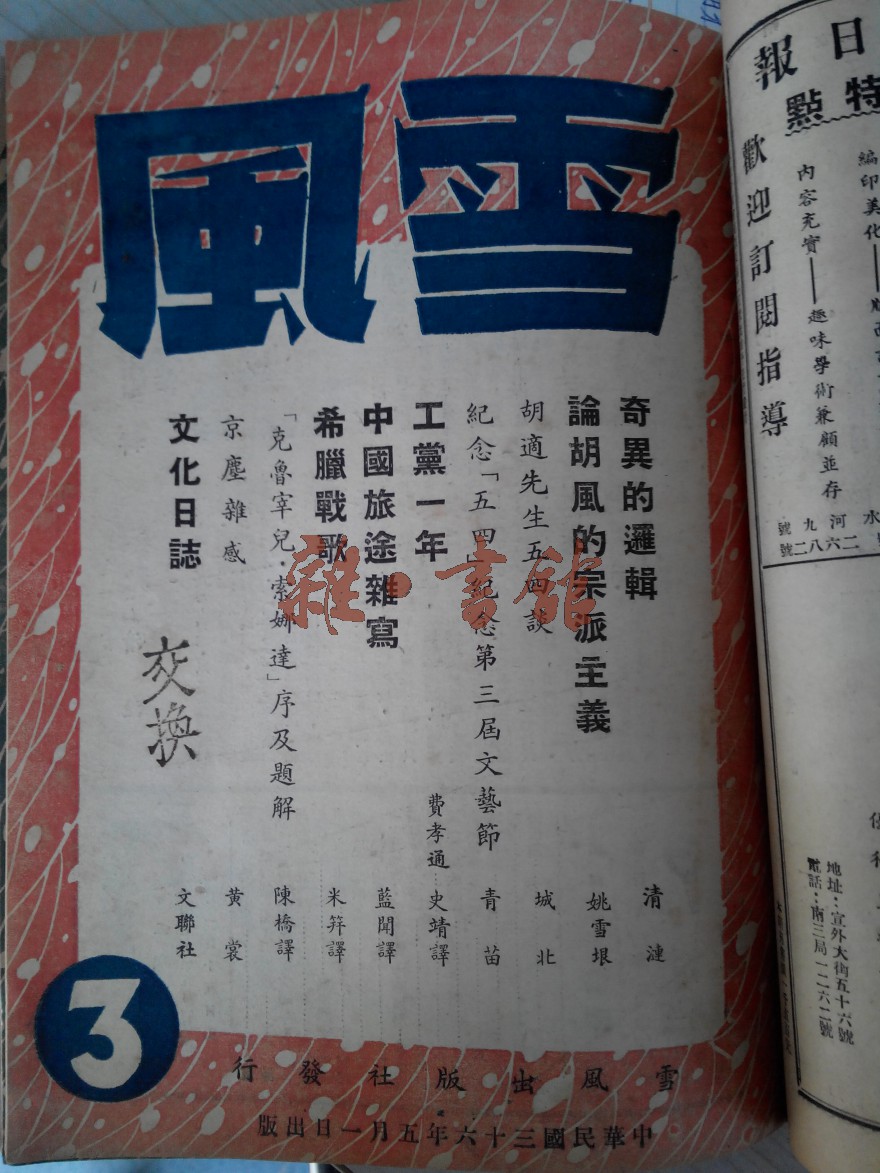 雪風
奇異的邏輯 清漣
論胡風的宗派主義 姚雪垠
胡適先生五四談 城北
紀念「五四」紀念第三屆文藝節 青苗
工黨一年 費孝通·史靖譯
中國旅途雜寫 藍聞譯
希臘戰歌 米筓譯
「克魯宰兒·索娜達」序及題解 陳橋譯
京塵雜感 黃裳
文化日誌 文聯社
交換
3
雪風出版社發行
中華民國三十六年五月一日出版
雜·書館
日報
特點
編印美化
內容充實——趣味學術兼顧並存
歡迎訂閱指導
河九號
二六八二號
地址：宣外大街五十六號
電話：南三局一二六二號